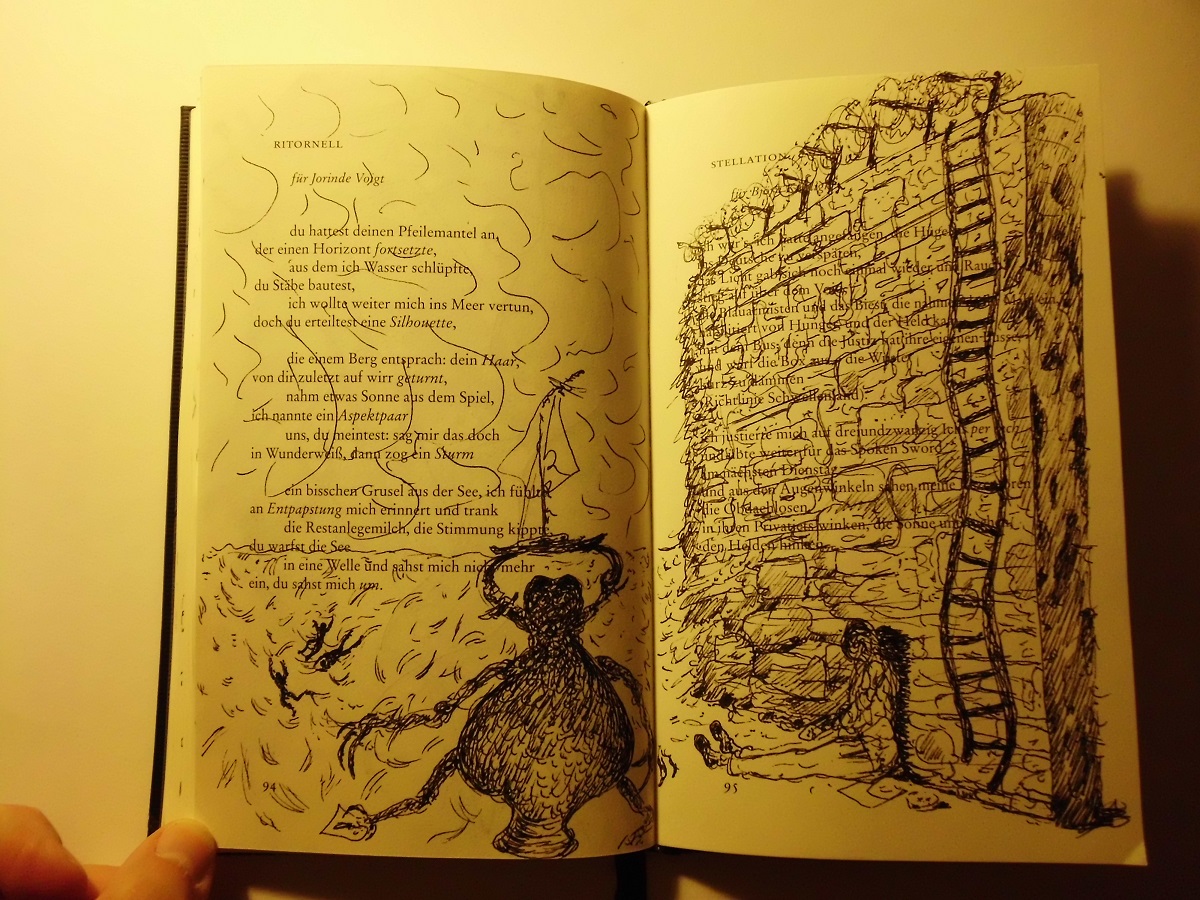 RITORNELL
für Jorinde Voigt
du hattest deinen Pfeilemantel an,
der einen Horizont fortsetzte,
aus dem ich Wasser schlüpfte,
du Stäbe bautest,
ich wollte weiter mich ins Meer vertun,
doch du erteiltest eine Silhouette,
die einem Berg entsprach: dein Haar,
von dir zuletzt auf wirr geturnt,
nahm etwas Sonne aus dem Spiel,
ich nannte ein Aspektpaar
uns, du meintest: sag mir das doch
in Wunderweiß, dann zog ein Sturm
ein bisschen Grusel aus der See, ich fühlte
an Entpapstung mich erinnert und trank
die Restanlegemilch, die Stimmung kippte,
du warfst die See
in eine Welle und sahst mich nicht mehr
ein, du sahst mich um.
94
STELLATION
für Björn
ich war's, ich hatte angefangen, die Hügel
Deutsche zu verspäten,
das Licht gab sich noch einmal wieder und Rauch
stieg auf über dem
die Blauarmisten und das Biest, die nahmen
von Hunger, und der Held kam
mit dem Bus, denn die Justiz hat ihre eigenen Busse,
und warf die Box aus, die Wüste
kurz zu dämmen
(Richtlinie Schwellenland).
ich justierte mich auf dreiundzwanzig per
und übte weiter für das Spoken Sword
am nächsten Dienstag
und aus den Augenwinkeln sahen meine
die Obdachlosen
in ihren Privatjets winken, die Sonne
den Helden hinken.
95